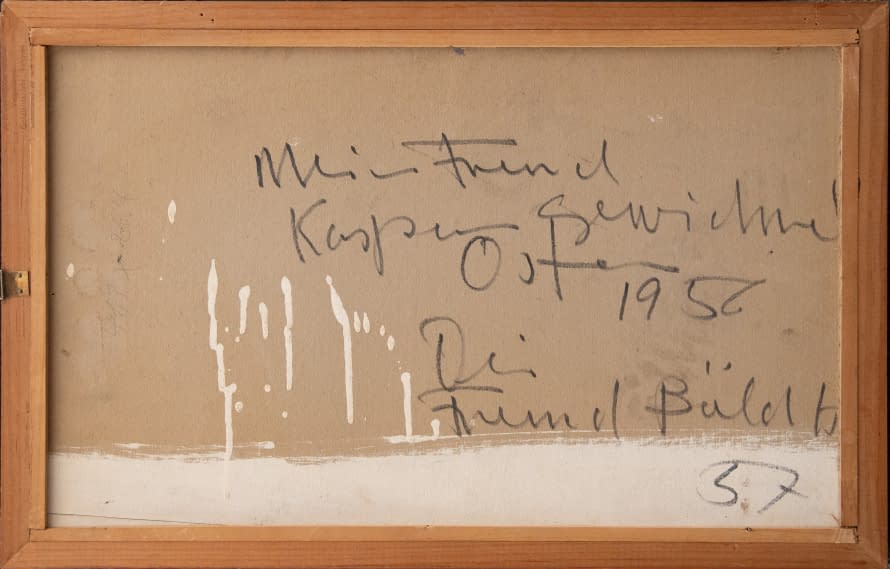 Mein Freund
Kaspar gewidmet
Ostern
1956
Dein
Freund
57